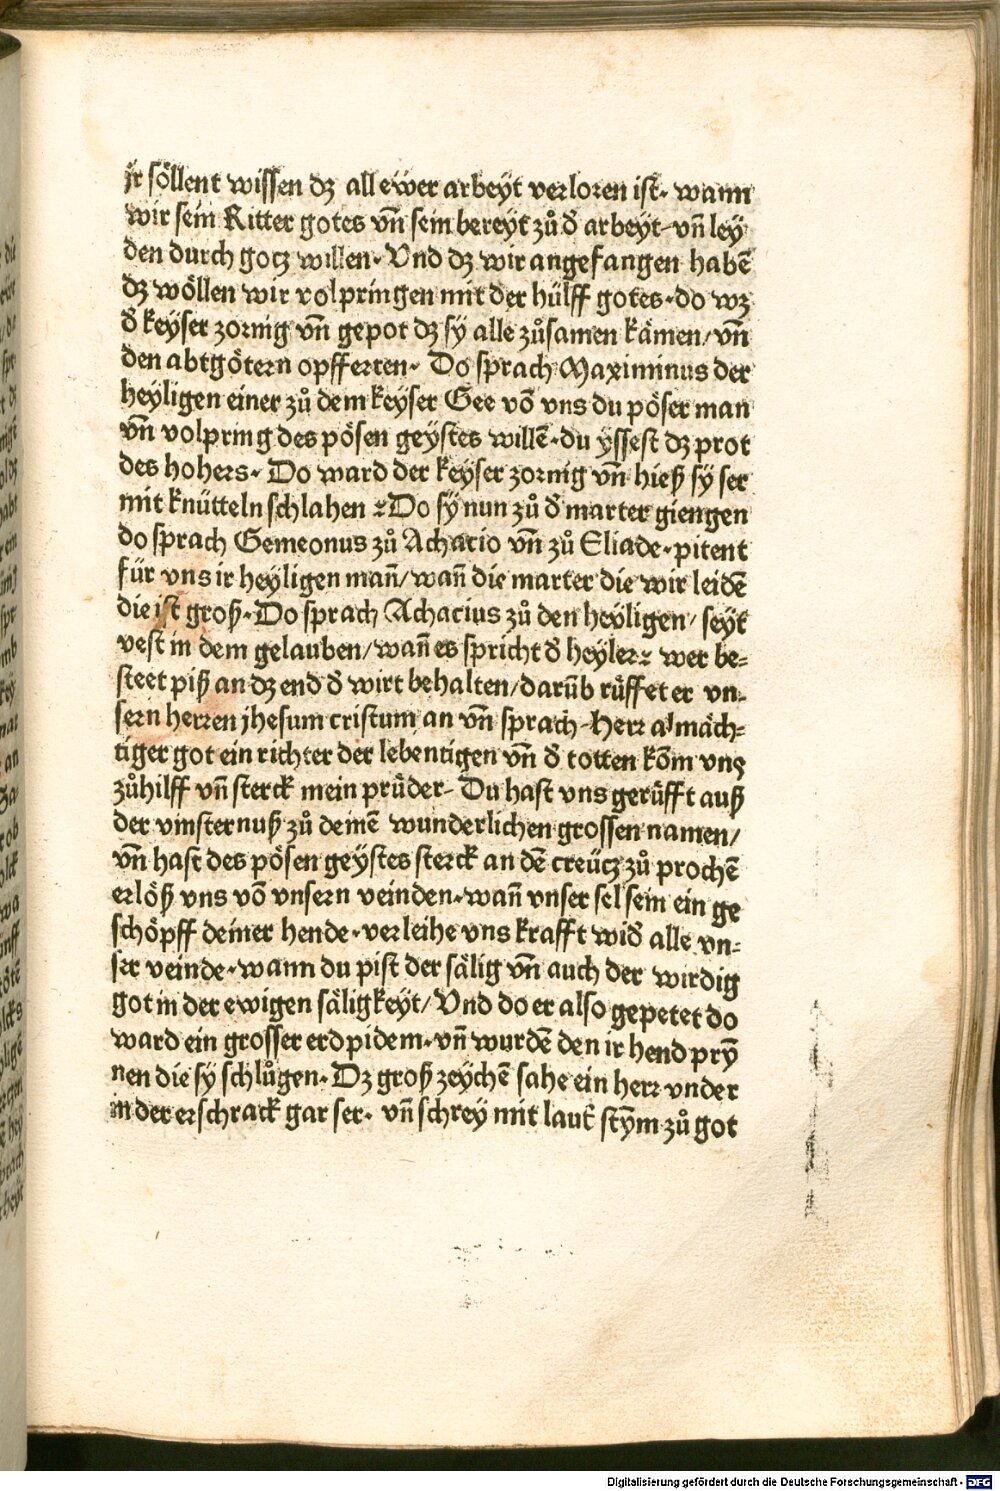 jr söllent wissen dz all ewer arbeyt verloren ist· wann
wir sein Ritter gotes vn̄ sein bereyt zů d̓ arbeyt· vn̄ ley
den durch gotz willen· Und dz wir angefangen habē
dz wöllen wir volpringen mit der hülff gotes· do wz
d̓ keyser zornig vn̄ gepot dz sy alle zůsamen kämen/ vn̄
den abtgötern opfferten· Do sprach Maximinus der
heyligen einer zů dem keyser Gee vō vns du pöser man
vn̄ volpring des pösen geystes willē· du yssest dz prot
des hohers· Do ward der keyser zornig vn̄ hieß sy ser
mit knütteln schlahen : Do sy nun zů d̓ marter giengen
do sprach Gemeonus zů Achacio vn̄ zů Eliade· pitent
für vns ir heyligen man̄/ wan̄ die marter die wir leidē
die ist groß· Do sprach Achacius zů den heyligen/ seyt
vest in dem gelauben/ wan̄ es spricht d̓ heyler: wer be=
steet piß an dz end d̓ wirt behalten/ darūb rüffet er vn=
sern herren jhesum cristum an vn̄ sprach· Herr almäch=
tiger got ein richter der lebentigen vn̄ d̓ totten kōm vns
zůhilff vn̄ sterck mein prüder· Du hast vns gerüfft auß
der vinsternuß zů deinē wunderlichen grossen namen/
vn̄ hast des pösen geystes sterck an dē creütz zů prochē
erlöß vns vō vnsern veinden· wan̄ vnser sel sein ein ge
schöpff deiner hende· verleihe vns krafft wid̓ alle vn=
ser veinde· wann du pist der sälig vn̄ auch der wirdig
got in der ewigen säligkeyt/ Und do er also gepetet do
ward ein grosser erdpidem· vn̄ wurdē den ir hend prȳ
nen die sy schlůgen· Dz groß zeychē sahe ein herr vnder
in der erschrack gar ser· vn̄ schrey mit laut̓ stȳm zů got
Digitalisierung gefördert durch die Deutsche Forschungsgemeinschaft - DFG